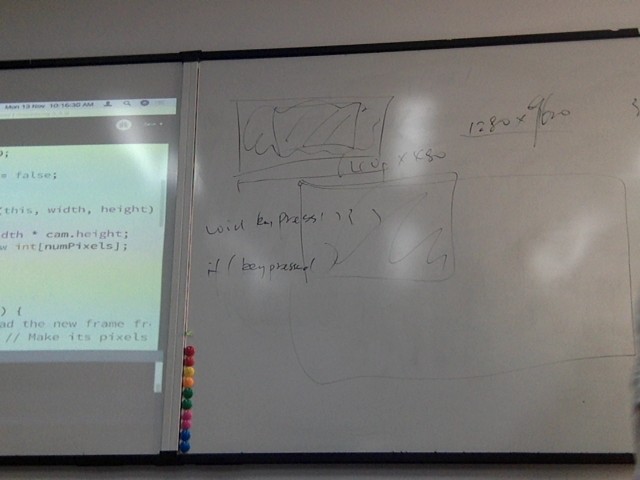 Mon 13 Nov 10:16:30 AM
0;
= false;
(this, width, height)
dth * cam.height;
w int[numPixels];
) {
ad the new frame fr
// Make its pixels
1280 x 960
x 480
void keypress() { }
if (keypressed)